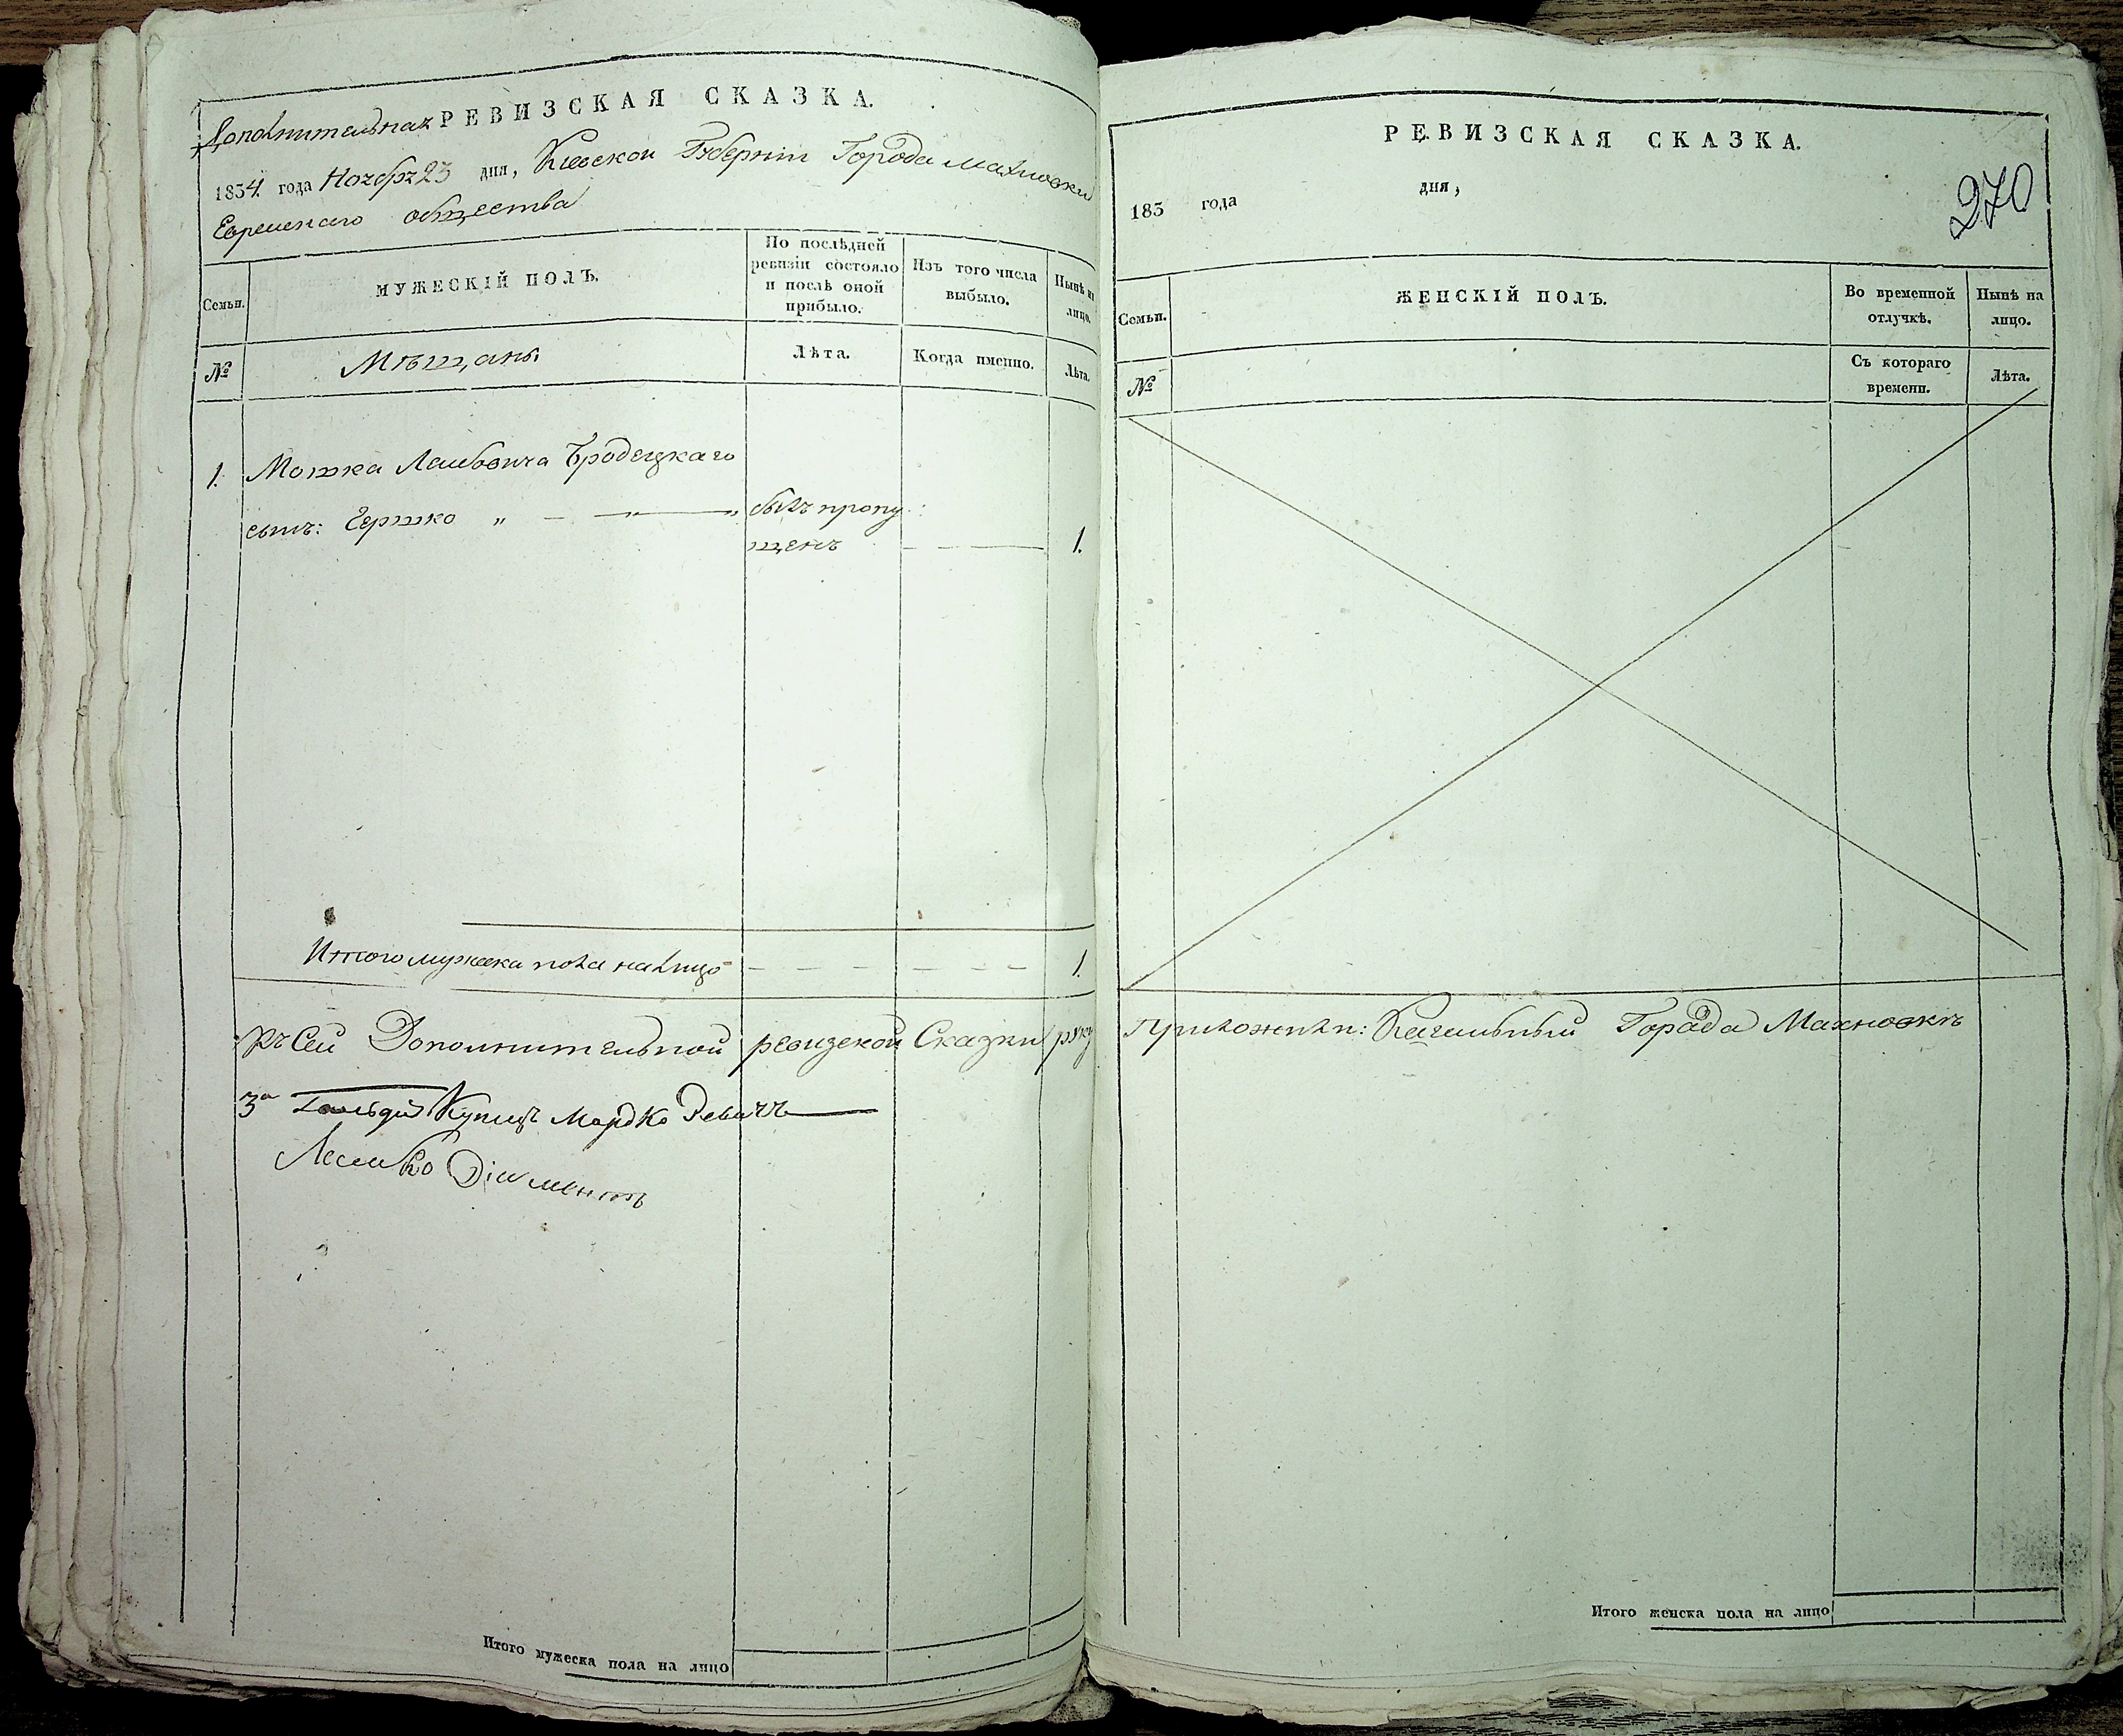 Дополнительная РЕВИЗСКАЯ СКАЗКА.
1834 года Ноября 23 дня, Кіевской Губерніи Города Махновки
Еврейскаго общества
Семьи.
МУЖЕСКІЙ ПОЛЪ.
По послѣдней ревизіи состояло и послѣ оной прибыло.
Изъ того числа выбыло.
Нынѣ на лицо.
№
Мѣщаны
Лѣта.
Когда именно.
Лѣта.
1. Мошка Лейбовича Бродецкаго
сынъ: Гершко „ — „ былъ пропу
щенъ — — 1.
Итого мужеска пола налицо — — — — — — 1.
Къ Сей Дополнительной ревизской Сказки руку
За Купецъ Мордко
Лейбко Діаментъ
Итого мужеска пола на лицо
РЕВИЗСКАЯ СКАЗКА.
183 года дня,
270
Семьи.
ЖЕНСКІЙ ПОЛЪ.
Во временной отлучкѣ.
Нынѣ на лицо.
№
Съ котораго времени.
Лѣта.
Приложили: Кагальный Города Махновкѣ
Итого женска пола на лицо